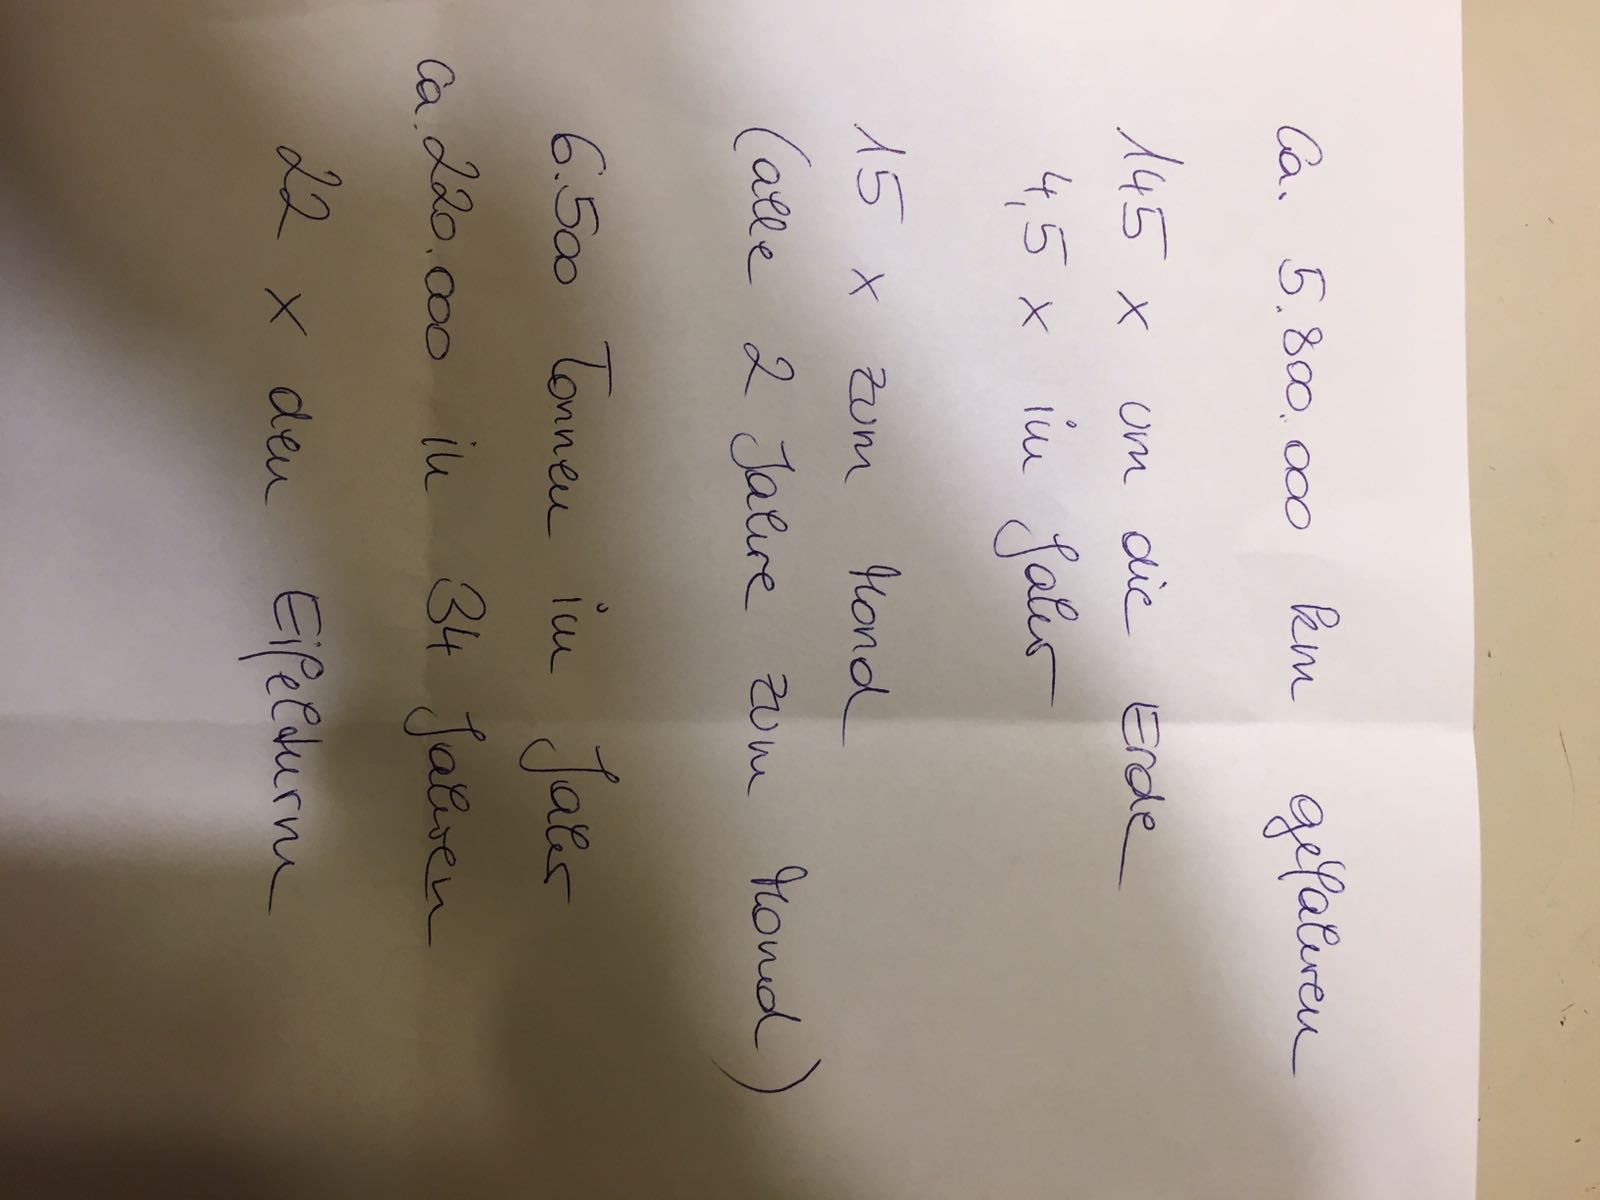 Ca. 5.800.000 km gefahren
145 x um die Erde
4,5 x im Jahr
15 x zum Mond
(alle 2 Jahre zum Mond)
6.500 Tonnen im Jahr
Ca. 220.000 in 34 Jahren
22 x den Eifelturm